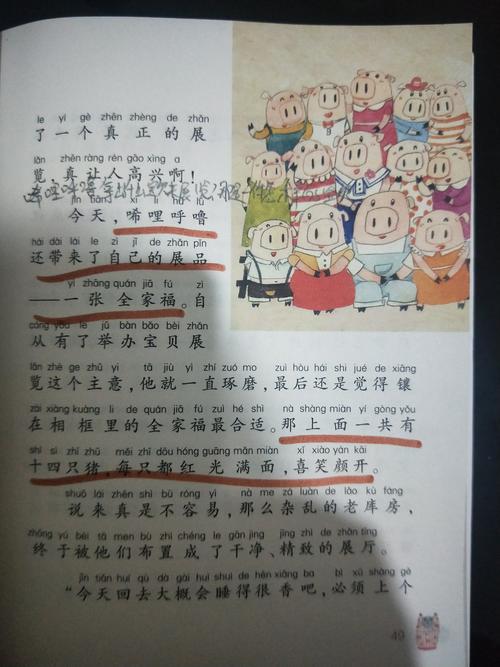 le yí gè zhēn zhèng de zhǎn
了一个真正的展
lǎn zhēn ràng rén gāo xìng a
览，真让人高兴啊！
唏哩呼噜
jīn tiān xī lǐ hū lū
今天，唏哩呼噜
hái dài lái le zì jǐ de zhǎn pǐn
还带来了自己的展品
yì zhāng quán jiā fú zì
——一张全家福。自
cóng yǒu le jǔ bàn bǎo bèi zhǎn
从有了举办宝贝展
lǎn zhè ge zhǔ yi tā jiù yì zhí zuó mo zuì hòu hái shi jué de xiāng
览这个主意，他就一直琢磨，最后还是觉得镶
zài xiàng kuàng li de quán jiā fú zuì hé shì nà shàng miàn yí gòng yǒu
在相框里的全家福最合适。那上面一共有
shí sì zhī zhū měi zhī dōu hóng guāng mǎn miàn xǐ xiào yán kāi
十四只猪，每只都红光满面，喜笑颜开。
shuō lái zhēn shì bù róng yì nà me zá luàn de lǎo kù fáng
说来真是不容易，那么杂乱的老库房，
zhōng yú bèi tā men bù zhì chéng le gān jìng jīng zhì de zhǎn tīng
终于被他们布置成了干净、精致的展厅。
jīn tiān huí qù dà gài huì shuì de hěn xiāng ba bì xū shàng gè
“今天回去大概会睡得很香吧，必须上个
49